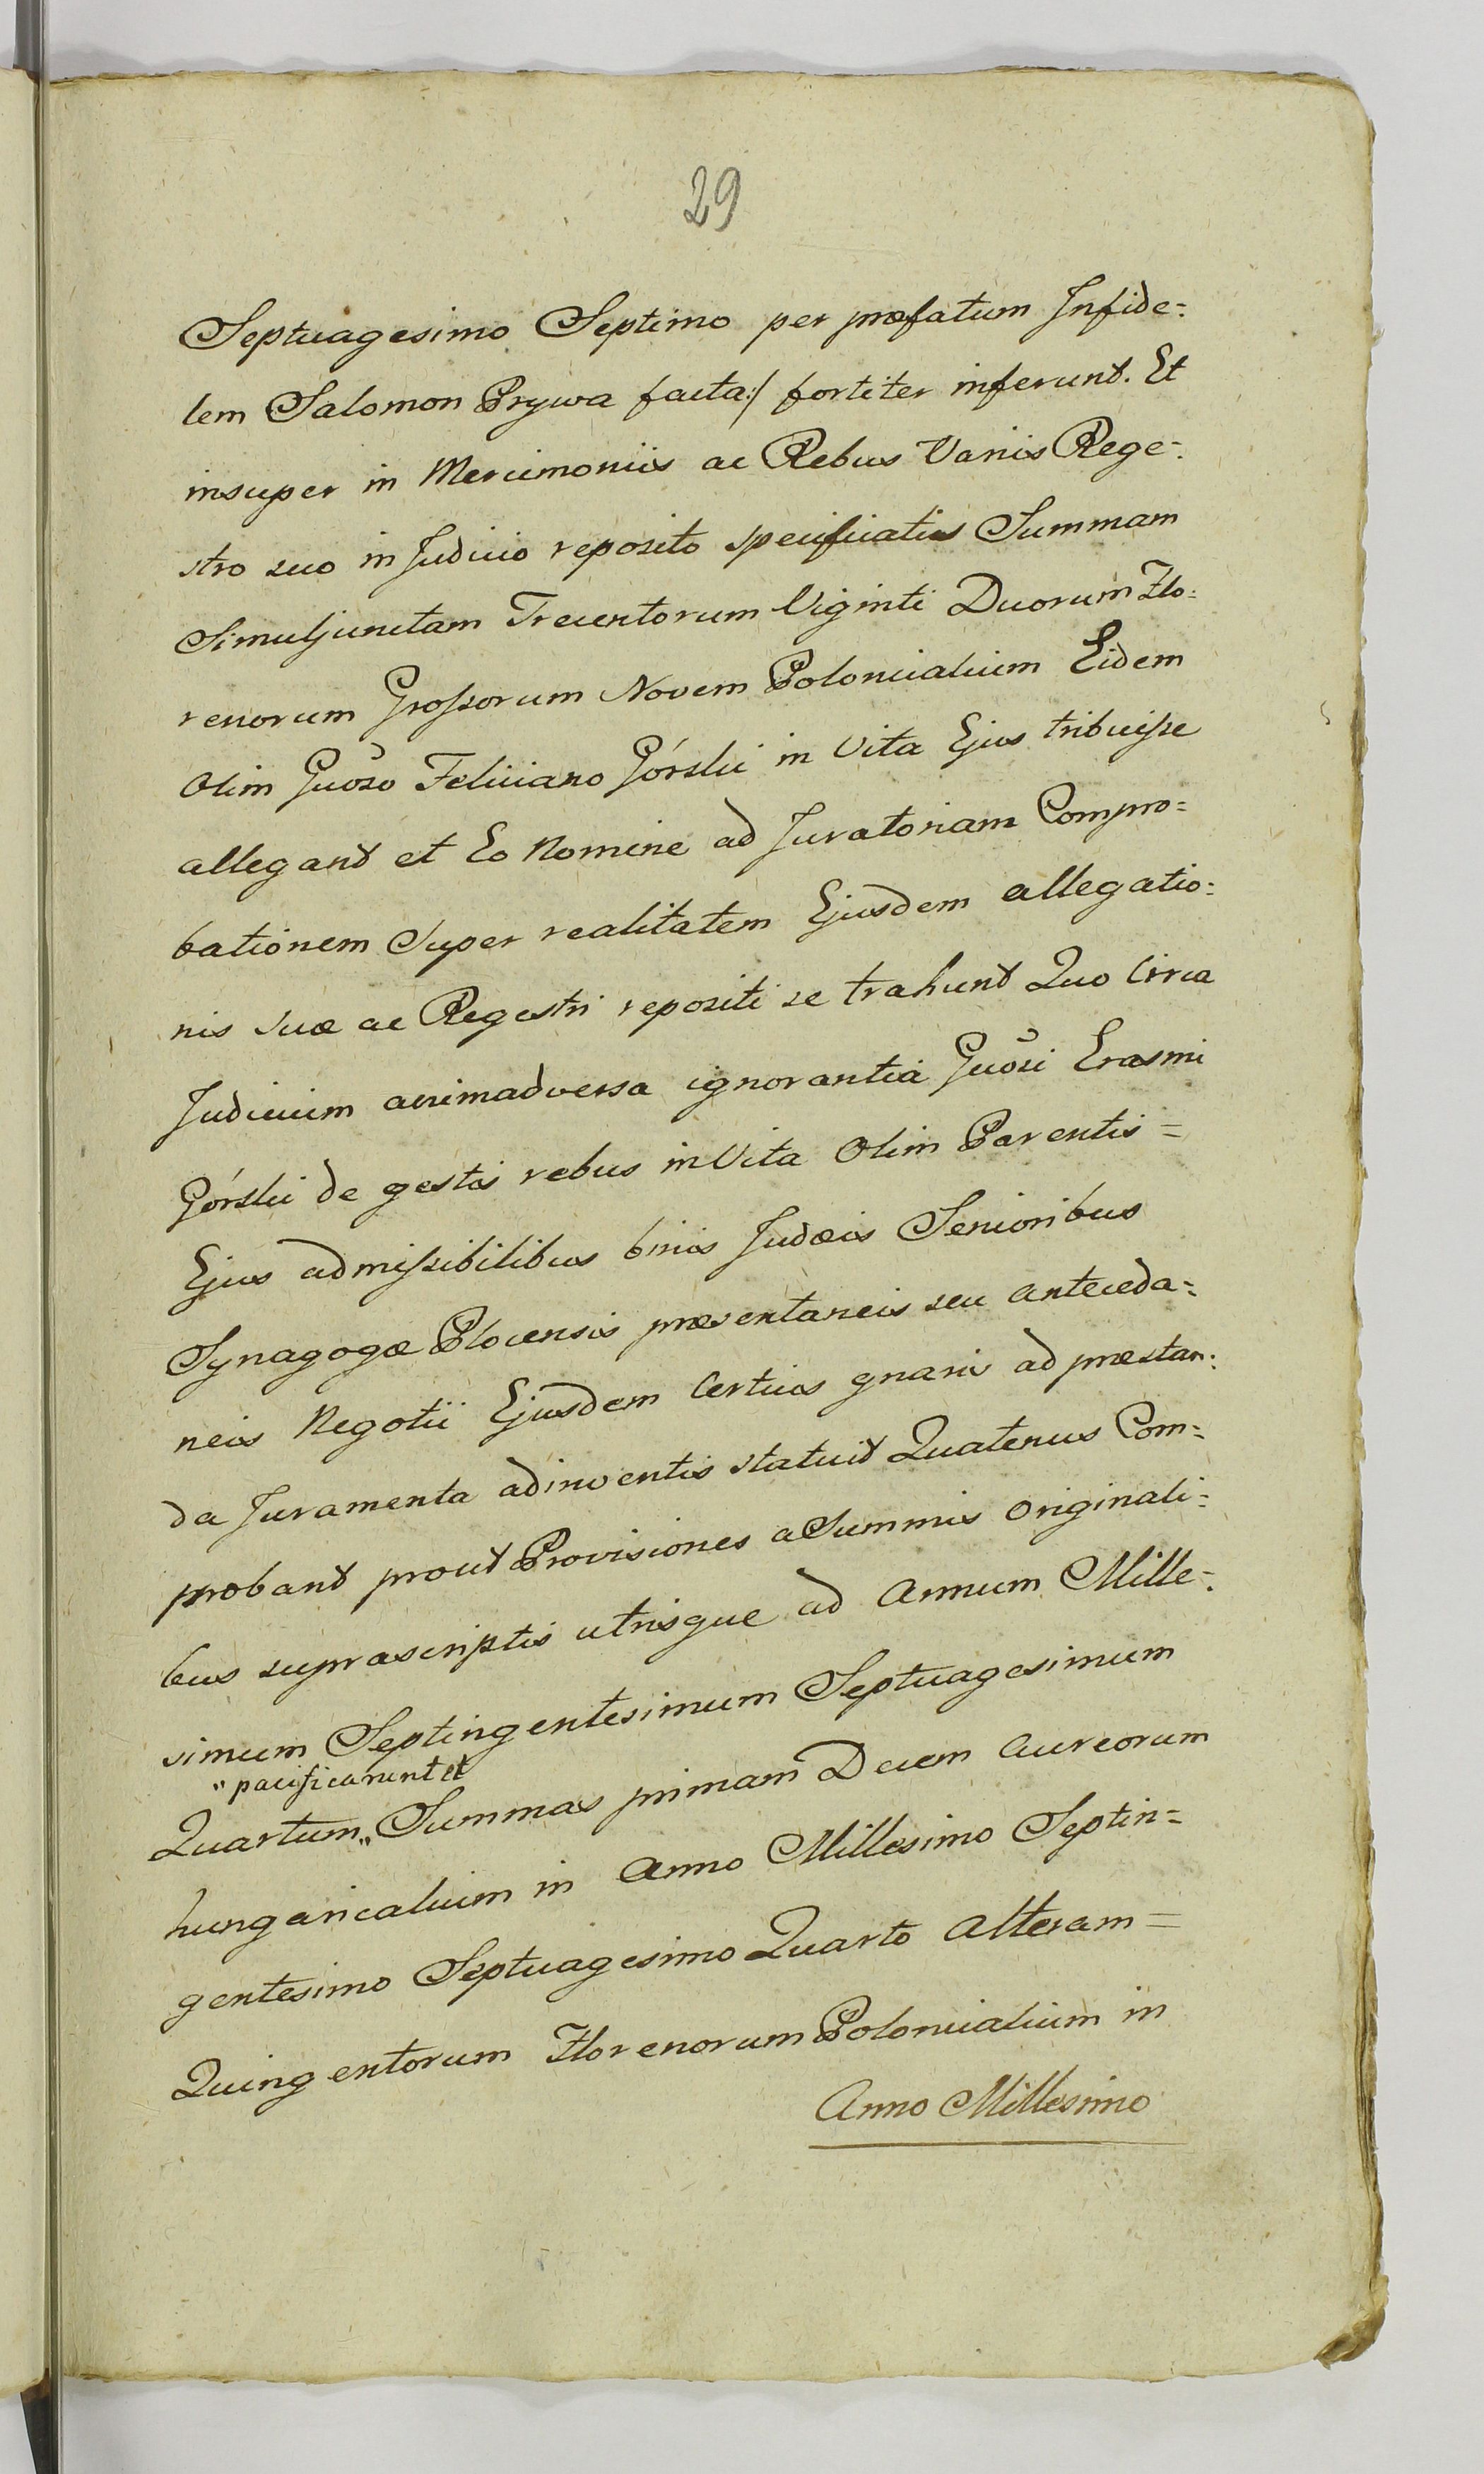 29
Septuagesimo Septimo per præfatum Infide=
lem Salomon Prywa facta:/ fortiter inferunt. Et
insuper in Mercimoniis ac Rebus Variis Rege=
stro suo in Judicio reposito specificatis Summam
Simuljunctam Trecentorum Viginti Duorum Flo=
renorum Grossorum Novem Polonicalium Eidem
Olim Gnoso Feliciano Górski in Vita Ejus tribuisse
allegant et Eo Nomine ad Juratoriam Compro=
bationem Super realitatem Ejusdem allegatio=
nis suæ ac Regestri repositi se trahunt Quo Circa
Judicium animadversa ignorantia Gnosi Erasmi
Górski de gestis rebus in Vita Olim Parentis=
Ejus admissibilibus binis Judæis Senioribus
Synagogæ Plocensis præsentaneis seu anteceda=
neis Negotii Ejusdem Certius gnaris ad præstan=
da Juramenta adinventis statuit Quatenus Com=
probant prout Provisiones a Summis Originali=
bus suprascriptis utrisque ad Annum Mille=
simum Septingentesimum Septuagesimum
"pacificarunt et
Quartum,, Summas primam Decem Aureorum
hungaricalium in Anno Millesimo Septin=
gentesimo Septuagesimo Quarto alteram=
Quingentorum Florenorum Polonicalium in
Anno Millesimo